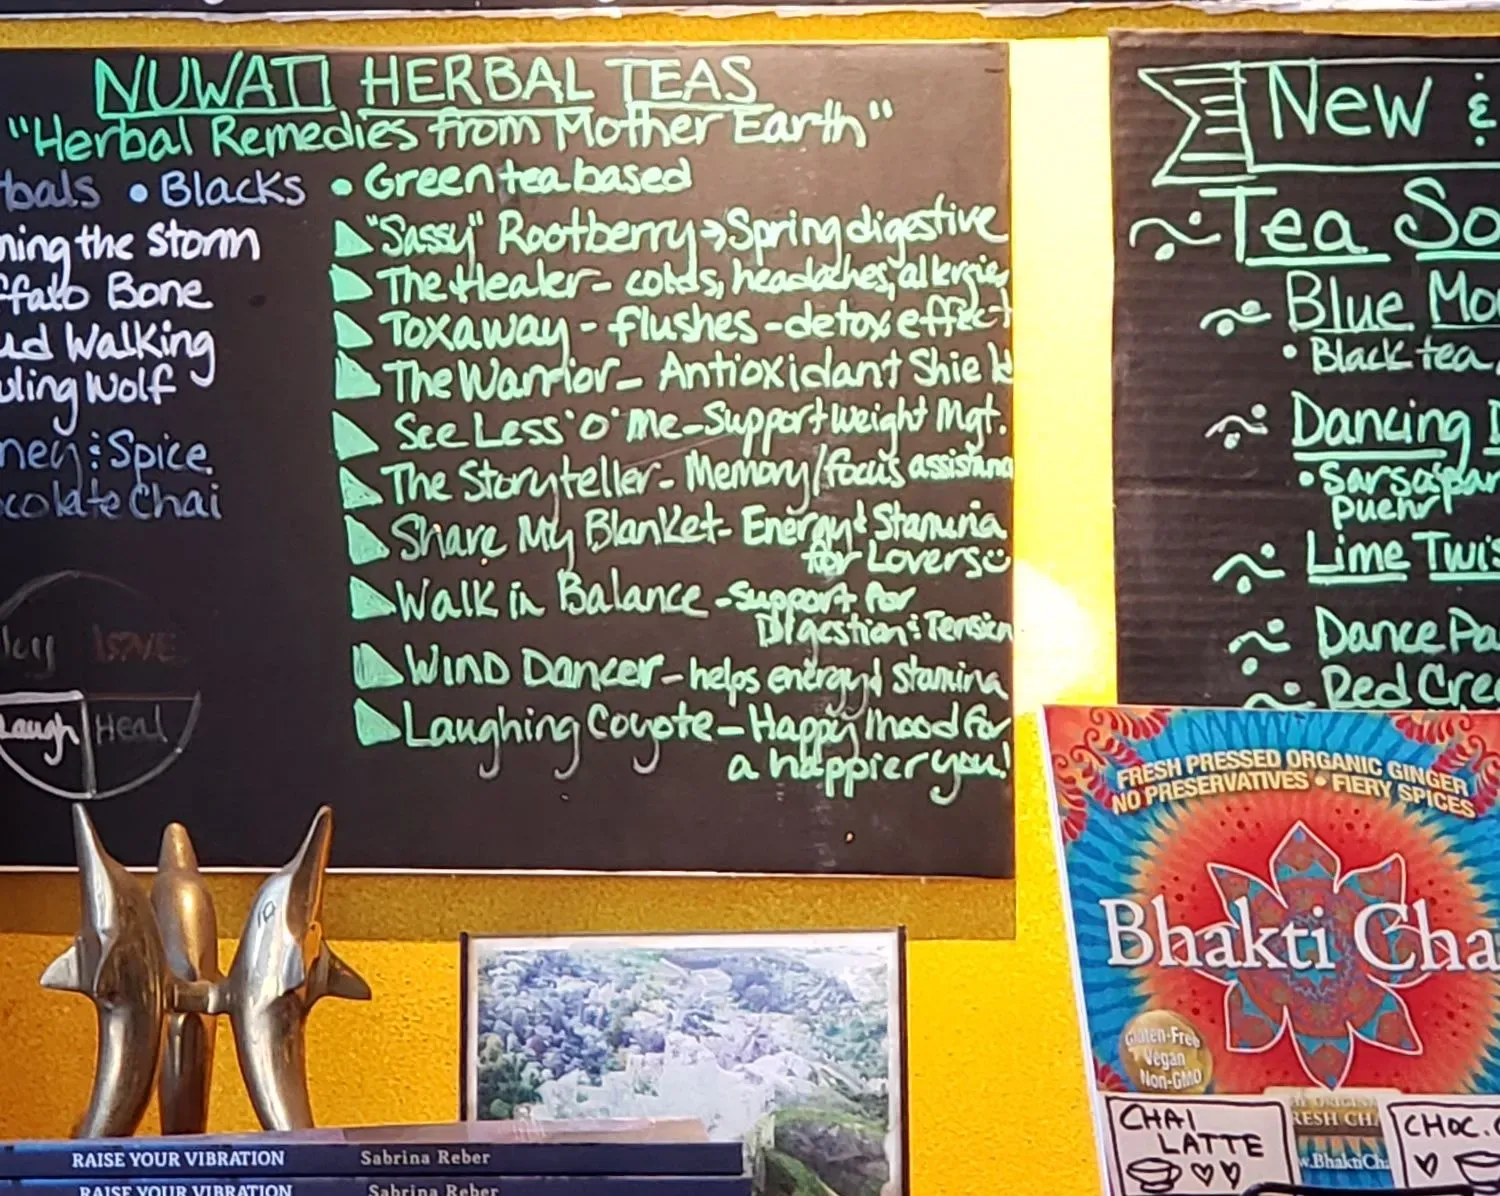 NUWATI HERBAL TEAS
"Herbal Remedies from Mother Earth"
bals • Blacks • Green tea based
ning the Storm
ffalo Bone
ud Walking
uling Wolf
ney & Spice
ocolate Chai
"Sassy" Rootberry → Spring digestive
The Healer - colds, headaches, allergies
Toxaway - flushes - detox effect
The Warrior - Antioxidant Shield
See Less 'o' Me - Support Weight Mgt.
The Storyteller - Memory/focus assistanc
Share My Blanket - Energy & Stamina
for Lovers
Walk in Balance - Support for
Digestion & Tension
Wind Dancer - helps energy & stamina
Laughing Coyote - Happy mood for
a happier you!
LOVE
Laugh Heal
New &
Tea So
Blue Mo
• Black tea,
Dancing D
• Sarsapar
puehr
Lime Twis
Dance Pa
Red Cree
FRESH PRESSED ORGANIC GINGER
NO PRESERVATIVES • FIERY SPICES
Bhakti Cha
Gluten-Free
Vegan
Non-GMO
RESH CHA
w.BhaktiCha
CHAI
LATTE
CHOC.
RAISE YOUR VIBRATION Sabrina Reber
RAISE YOUR VIBRATION Sabrina Reber